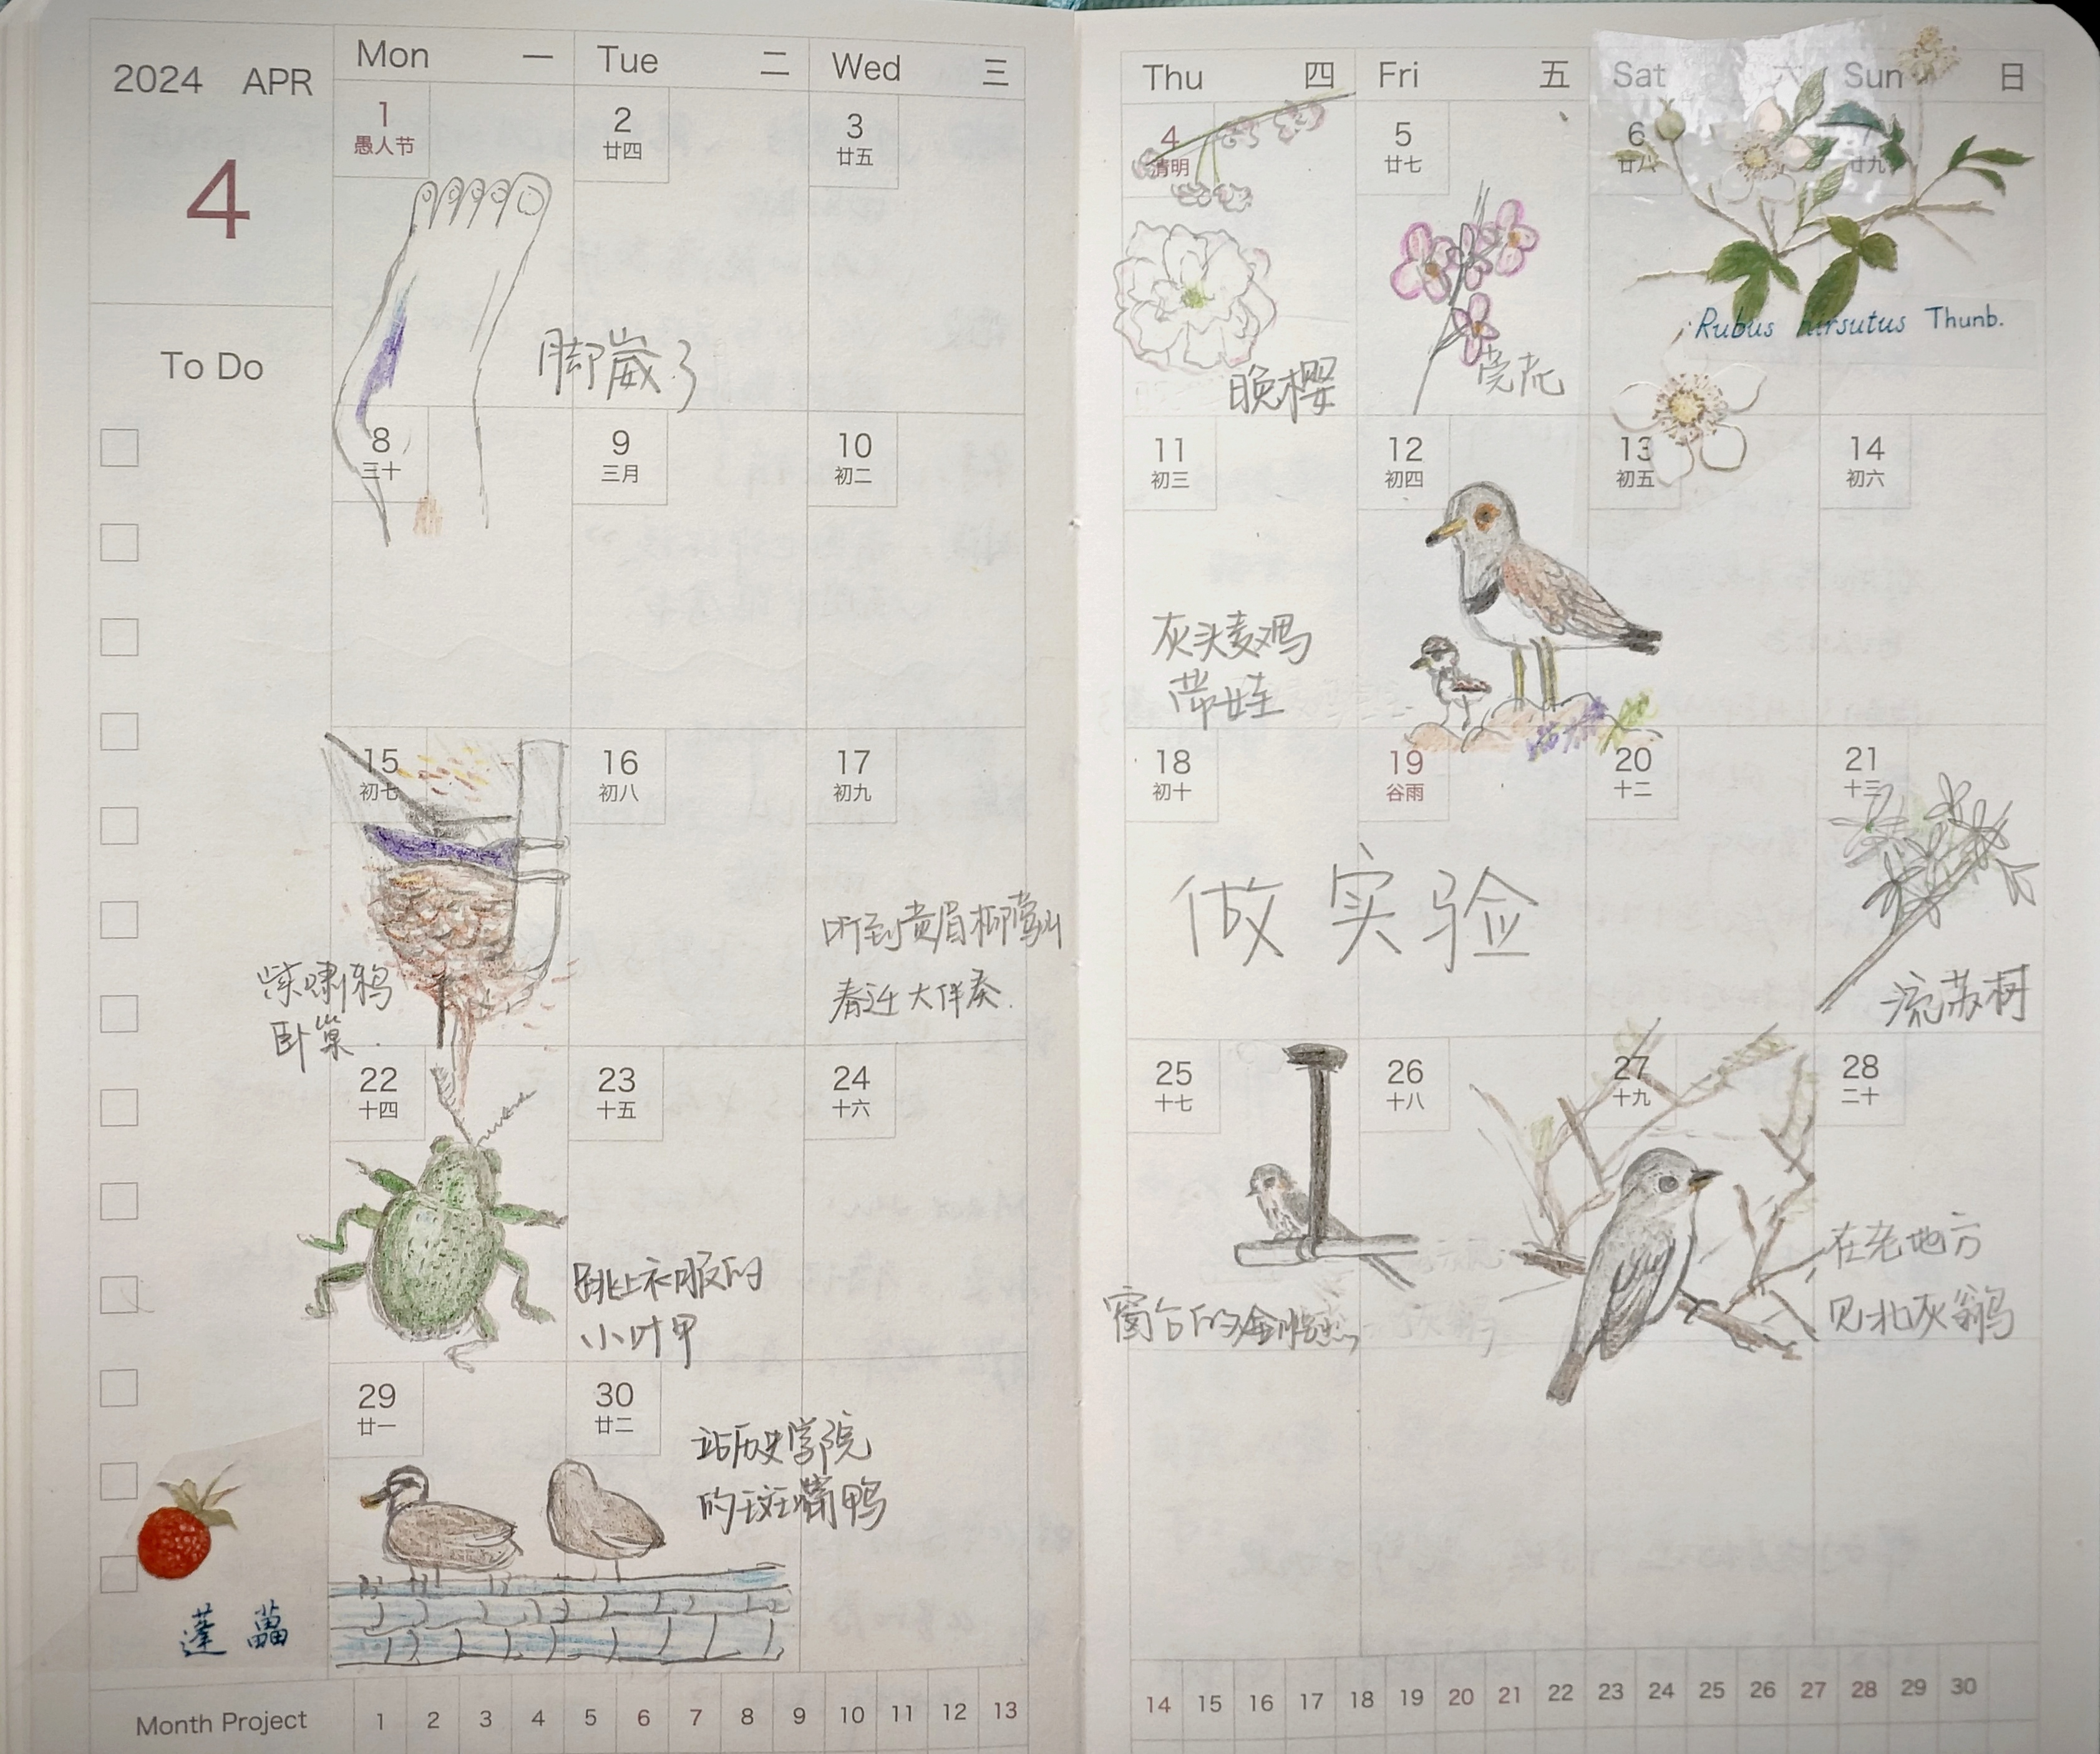 2024 APR
4
To Do
Mon 一
Tue 二
Wed 三
1
愚人节
2
廿四
3
廿五
脚崴了
8
三十
9
三月
10
初二
15
初七
16
初八
17
初九
紫啸鸫
卧巢.
听到黄眉柳莺以
春迁大伴奏.
22
十四
23
十五
24
十六
跳上衣服的
小叶甲
29
廿一
30
廿二
站历史学院
的斑嘴鸭
蓬蘽
Month Project 1 2 3 4 5 6 7 8 9 10 11 12 13
Thu 四
Fri 五
Sat 六
Sun 日
4
清明
5
廿七
6
廿八
7
廿九
晚樱
芫花
Rubus hirsutus Thunb.
11
初三
12
初四
13
初五
14
初六
灰头麦鸡
带娃
18
初十
19
谷雨
20
十二
21
十三
做实验
流苏树
25
十七
26
十八
27
十九
28
二十
窗台的
在老地方
见北灰鹟
14 15 16 17 18 19 20 21 22 23 24 25 26 27 28 29 30